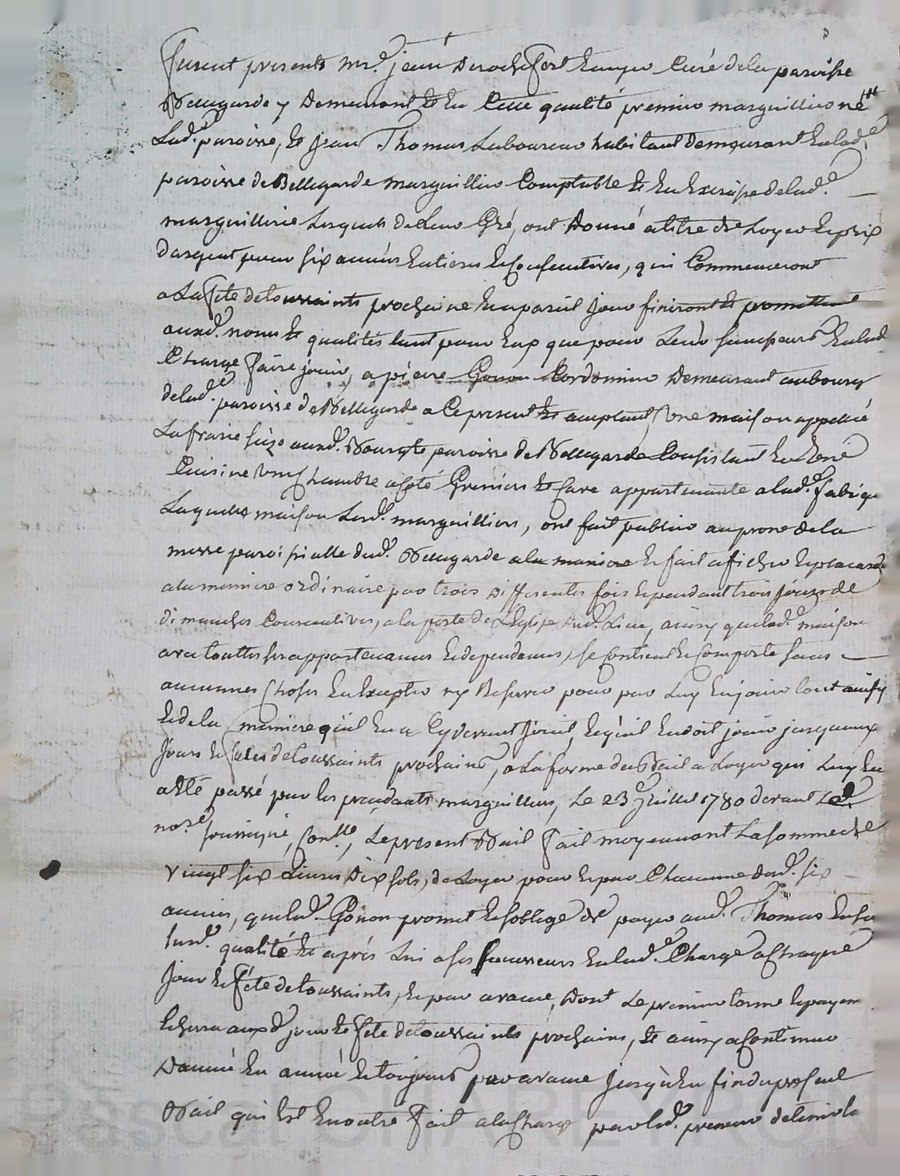 Furent presents mre. jean Derochefort Ecuyer Curé dela paroisse
Bellegarde y Demeurant et En Cette qualité premier marguillier né
Lad. paroisse, Et jean Thomas Laboureur habitant demeurant En lade.
paroisse de Bellegarde marguillier Comptable Et En Exercise delade.
marguillerie Lesquels de Leur Gré, ont Donné a titre de Loyer Et prix
Dargent pour six années Entieres Et Consecutives, qui Commenceront
a La fete de toussaints prochaine Et a pareil jour finiront Et promettent
auxd. noms Et qualités tant pour Eux que pour Leurs successeurs En lade.
Charge faire jouir, a pierre Gonon Cordonnier Demeurant au bourg
delade. paroisse de Bellegarde a Ce present Et acceptant Une maison appellée
La frarie size aud. Bourg Et paroisse de Bellegarde Consistant En
Cuisine Une Chambre a Coté Greniers Et Cave appartenante a lade. fabrique
Laquelle maison Lesd. marguilliers, ont fait publier au prone dela
messe paroissialle dud. Bellegarde a la maniere Et fait afficher Et placarder
a la maniere ordinaire par trois Differentes fois Et pendant trois jours de
Dimanches Consecutives, a la porte de L'Eglise dud. Lieu, ainsy que lad. maison
avec touttes ses appartenances Et dependances, se Contient Et Comporte sans
aucunnes Choses En Excepter ny Reserver pour par Luy En jouir tout ainsy
Et dela maniere qu'il En a Cy devant jouit Et qu'il En doit jouir jusqu'aux
jours Et fete de toussaints prochains, a La forme du Bail a Loyer qui Luy En
a Eté passé par les precedants marguilliers, Le 23e. juillet 1780 devant Le
nore. soussigné, Conlle., Le present Bail fait moyennant La somme de
vingt six Livres Dix sols, de Loyer pour Et par Chacunne desd. six
années, que led. Gonon promet Et s'oblige de payer aud. Thomas En sa
susd. qualité Et après Lui a ses successeurs En lade. Charge a Chaque
jour Et fête de toussaints, Et par avance, Dont Le premier terme Et payement
Echerra auxd. jour Et fete de toussaints prochains, Et ainsy a Continuer
D'année En année Et toujours par avance jusqu'En fin du present
Bail qui Est En outre fait a la Charge par led. preneur de tenir la
Pascal CHAREYRON